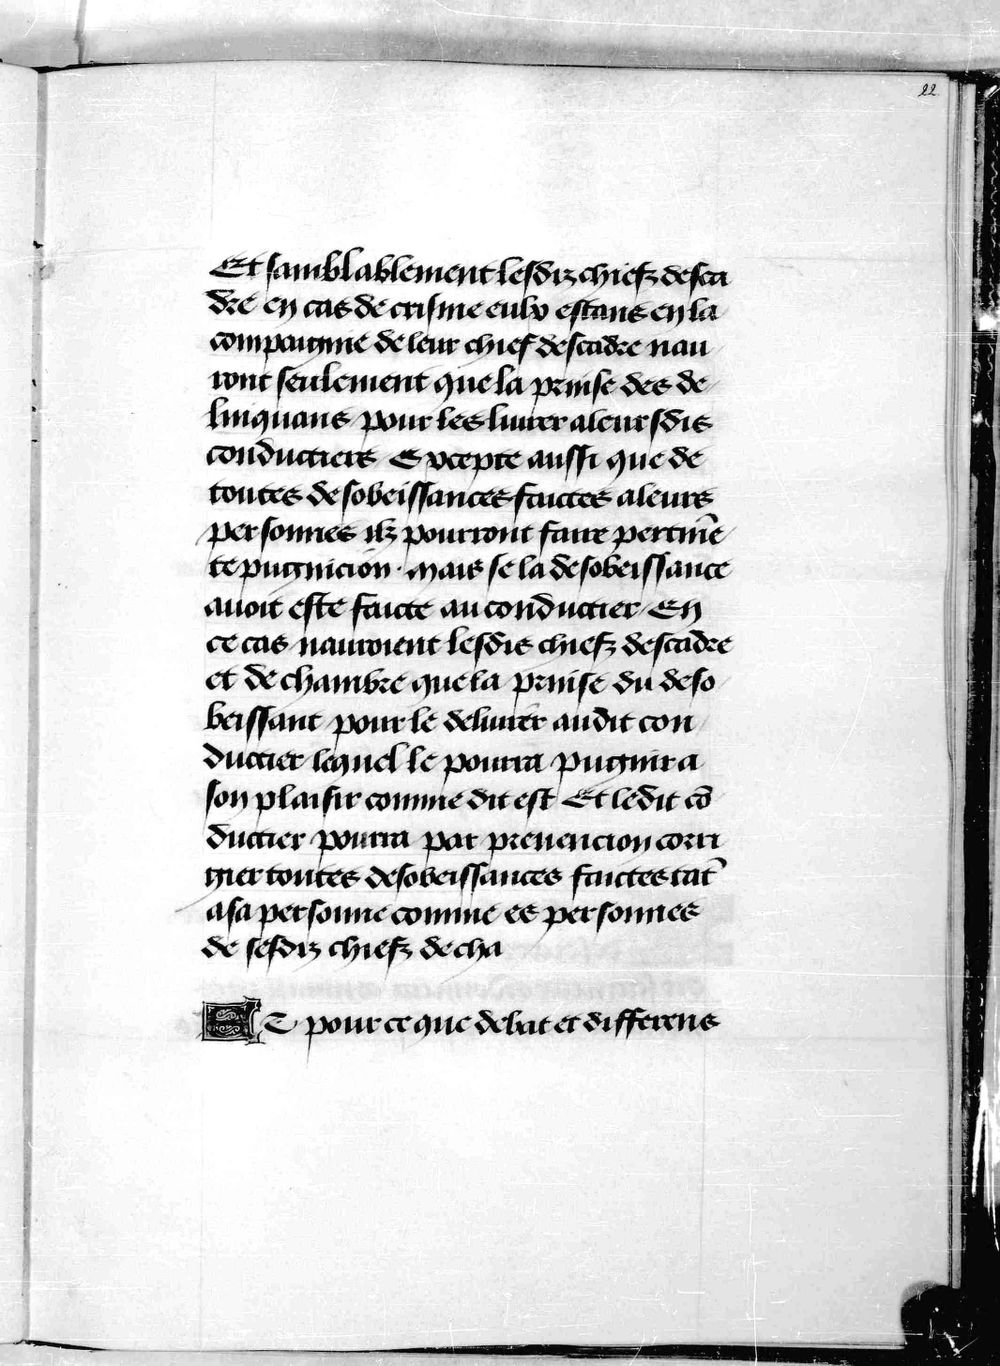 22
Et samblablement lesdiz chiefz desca
dre en cas de crisme eulx estans en la
compaignie de leur chief descadre nau
ront seulement que la prinse des de
linquans pour les livrer a leursdis
conductiers Excepte aussi que de
toutes desobeissances faictes a leurs
personnes ilz pourront faire pertinē
te pugnicion. Mais se la desobeissance
avoit este faicte au conductier En
ce cas nauroient lesdis chiefz descadre
et de chambre que la prinse du deso
beissant pour le delivrer audit con
ductier lequel le pourra pugnir a
son plaisir comme dit est Et ledit cō
ductier pourra par prevencion corri
gier toutes desobeissances faictes tāt
a sa personne comme es personnes
de sesdiz chiefz de cha
ET pour ce que debat et differens